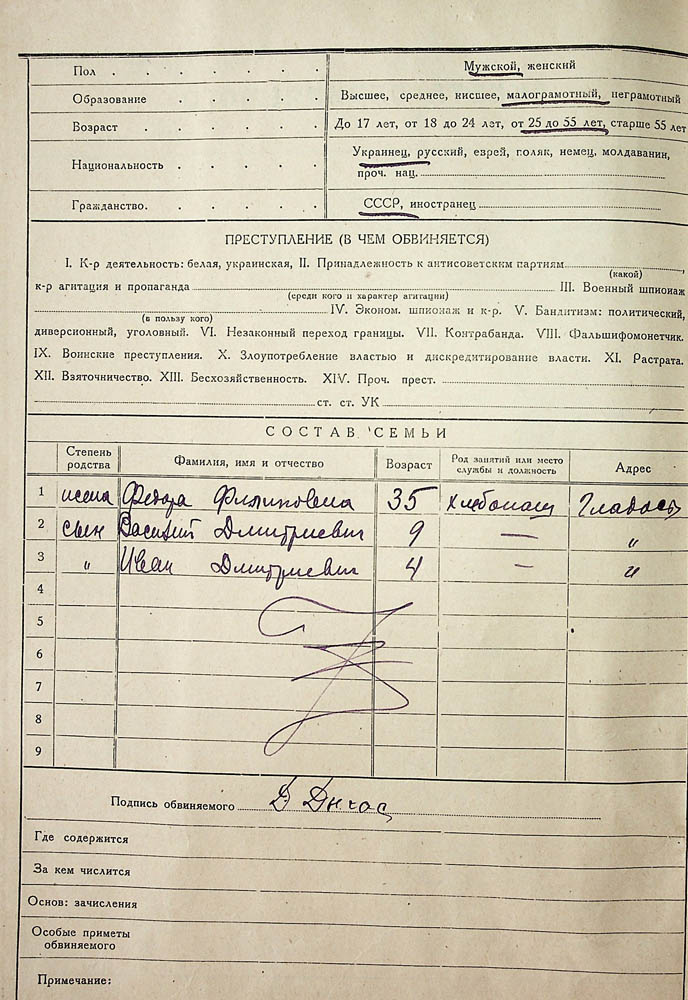 Пол . . . . . . Мужской, женский
Образование . . . . Высшее, среднее, низшее, малограмотный, неграмотный
Возраст . . . . . До 17 лет, от 18 до 24 лэт, от 25 до 55 лет, старше 55 лет
Национальность . . . . Украинец, русский, еврей, поляк, немец, молдаванин,
проч. нац.
Гражданство. . . . . СССР, иностранец
ПРЕСТУПЛЕНИЕ (В ЧЕМ ОБВИНЯЕТСЯ)
I. К-р деятельность: белая, украинская, II. Принадлежность к антисоветским партиям
(какой)
к-р агитация и пропаганда III. Военный шпионаж
(среди кого и характер агитации)
IV. Эконом. шпионаж и к-р. V. Бандитизм: политический,
(в пользу кого)
диверсионный, уголовный. VI. Незаконный переход границы. VII. Контрабанда. VIII. Фальшифомонетчик.
IX. Воинские преступления. X. Злоупотребление властью и дискредитирование власти. XI. Растрата.
XII. Взяточничество. XIII. Бесхозяйственность. XIV. Проч. прест.
ст. ст. УК
СОСТАВ СЕМЬИ
Степень родства Фамилия, имя и отчество Возраст Род занятий или место службы и должность Адрес
1 жена Федора Филиповна 35 Хлебопаш
2 сын Василий Дмитриевич 9 — "
3 " Иван Дмитриевич 4 — "
4
5
6
7
8
9
Подпись обвиняемого Д
Где содержится
За кем числится
Основ: зачисления
Особые приметы
обвиняемого
Примечание: